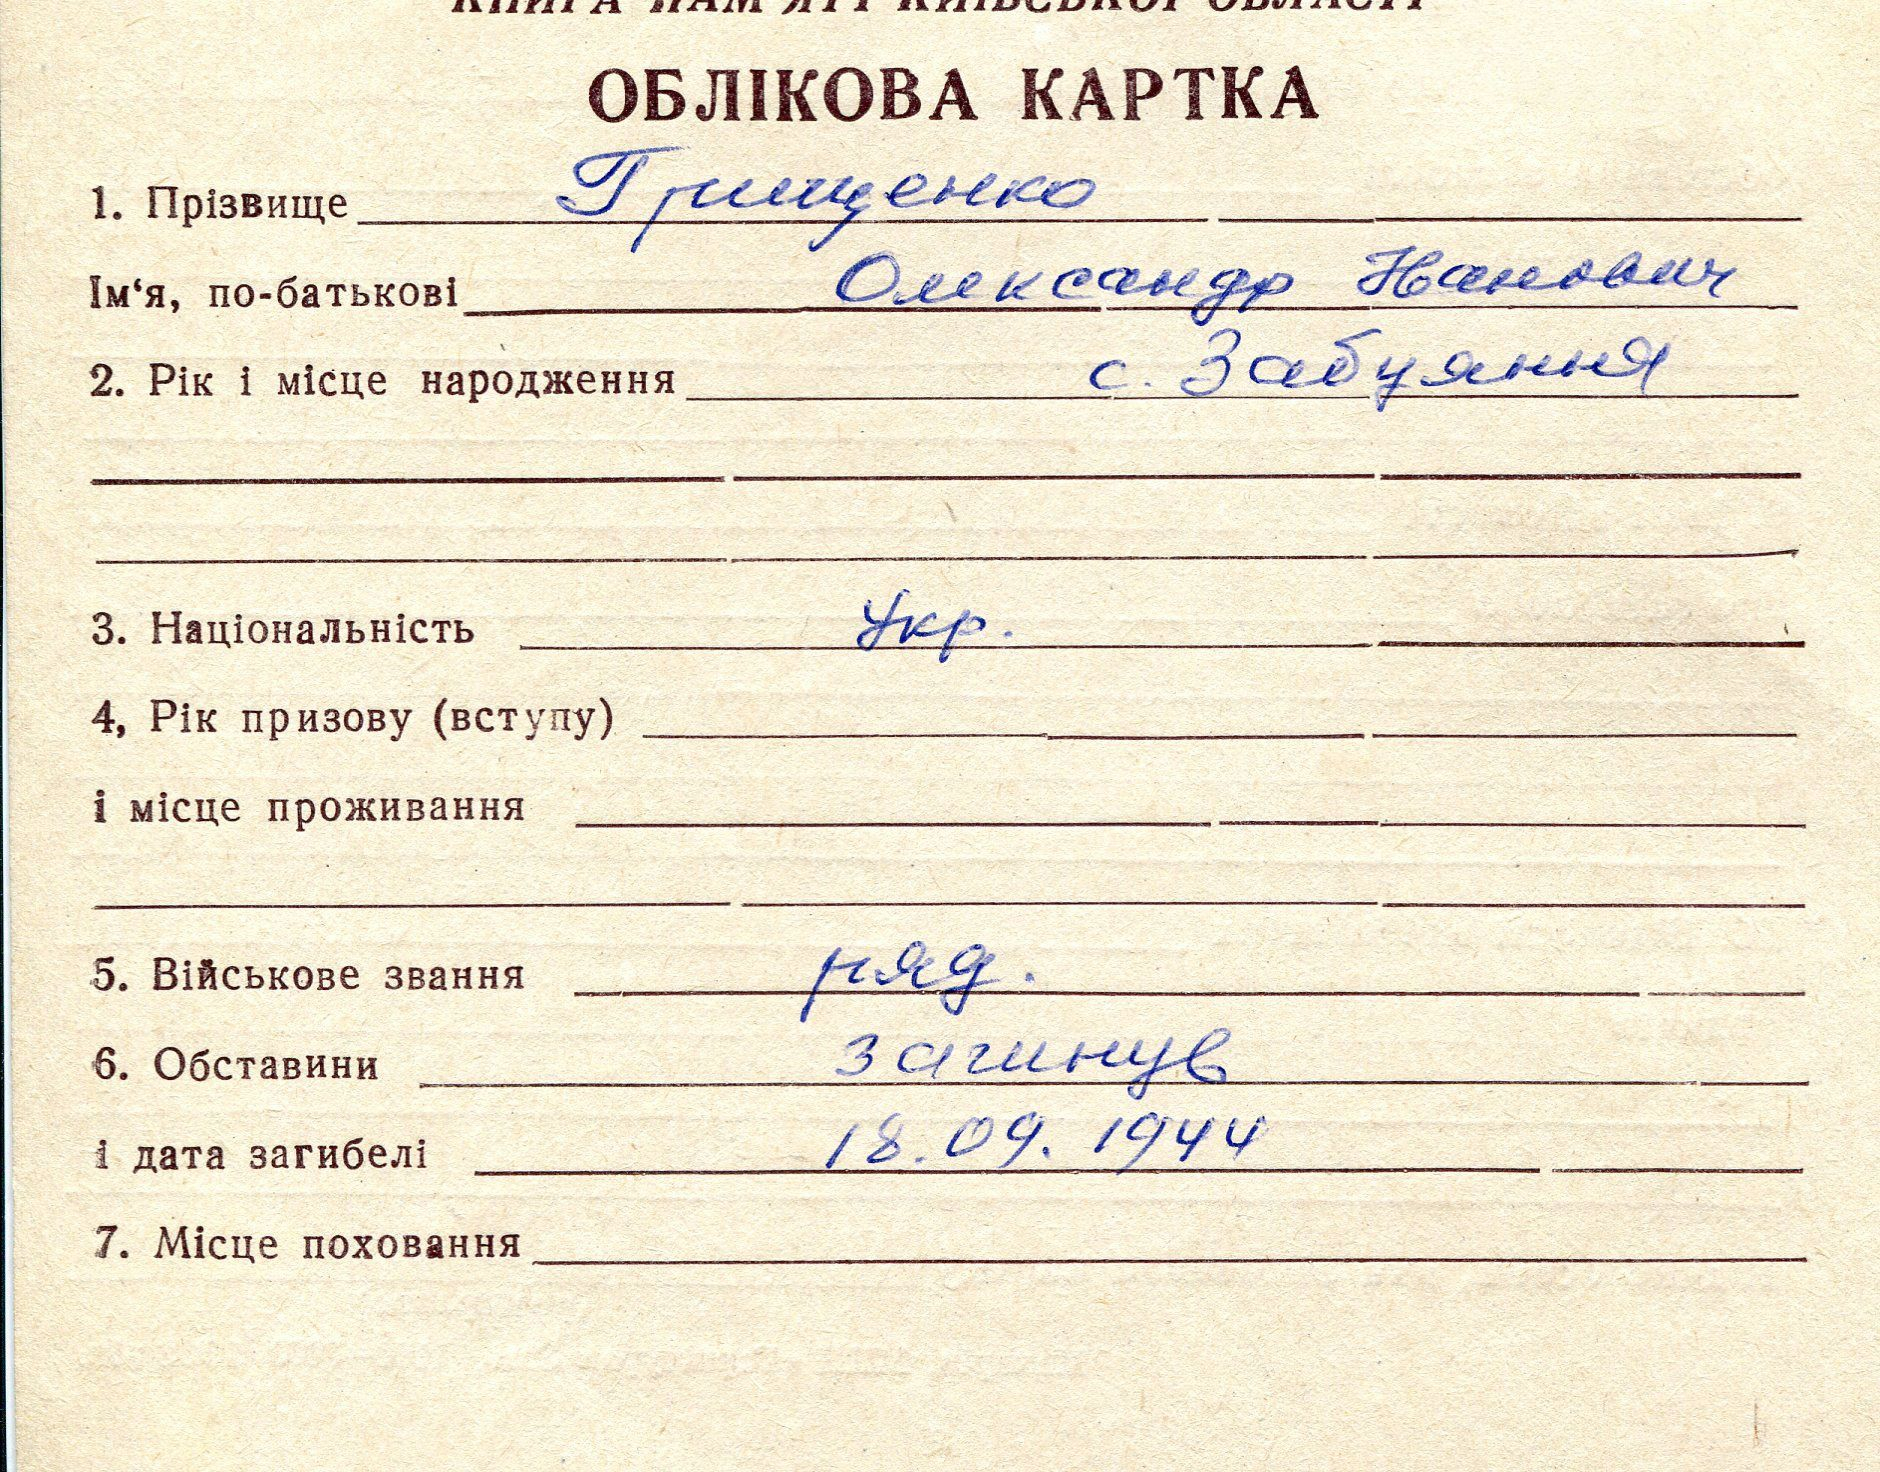 КНИГА ПАМ'ЯТІ КИЇВСЬКОЇ ОБЛАСТІ
ОБЛІКОВА КАРТКА
1. Прізвище Грищенко
Ім‘я, по-батькові Олександр Іванович
2. Рік і місце народження с. Забуяння
3. Національність Укр.
4, Рік призову (вступу)
і місце проживання
5. Військове звання ряд.
6. Обставини загинув
і дата загибелі 18.09.1944
7. Місце поховання